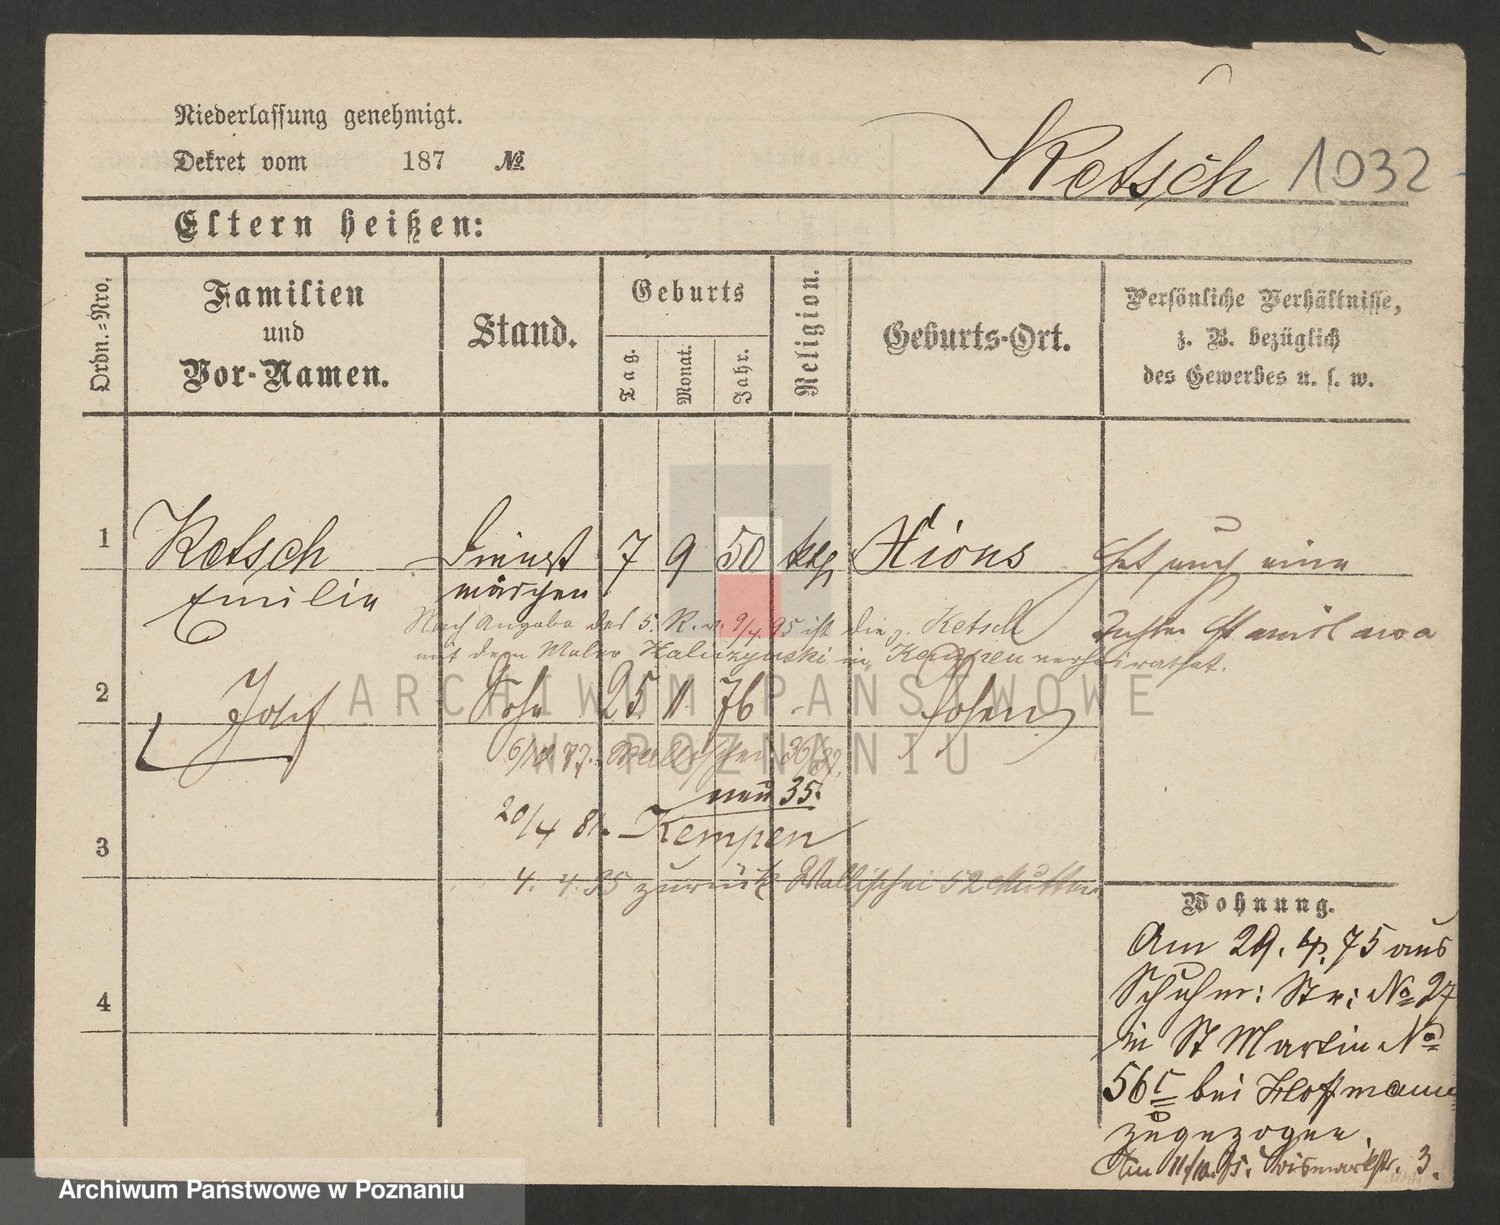 Niederlassung genehmigt.
Dekret vom 187 №
Ketsch 1032
Eltern heißen:
Ordn.-Nro.
Familien
und
Vor-Namen.
Stand.
Geburts
Tag.
Monat.
Jahr.
Religion.
Geburts-Ort.
Persönliche Verhältnisse,
z. B. bezüglich
des Gewerbes u. s. w.
1 Ketsch Dienst 7 9 50 ktz Xions Hat auch eine
Emilie mädchen
Nach Angabe des 5. R. v. 9/4 95 ist die g. Ketsch Tochter Stanislawa
mit dem Maler Kaliczynski in Kempen verheirathet.
2 Josef Sohn 25 11 76 Posen
6/10. 77. Wallischei 36/37.
neu 35.
20/4 81. Kempen
3
4. 4. 95 zurück Wallischei 52 Mutter
Wohnung.
Am 29. 4. 75 aus
Schuhm: Str: № 27
in St Martin №
56 bei Hoffmann
zugezogen.
Am 11/10. 75. Bismarckstr. 3.
4
ARCHIWUM PAŃSTWOWE
W POZNANIU
Archiwum Państwowe w Poznaniu